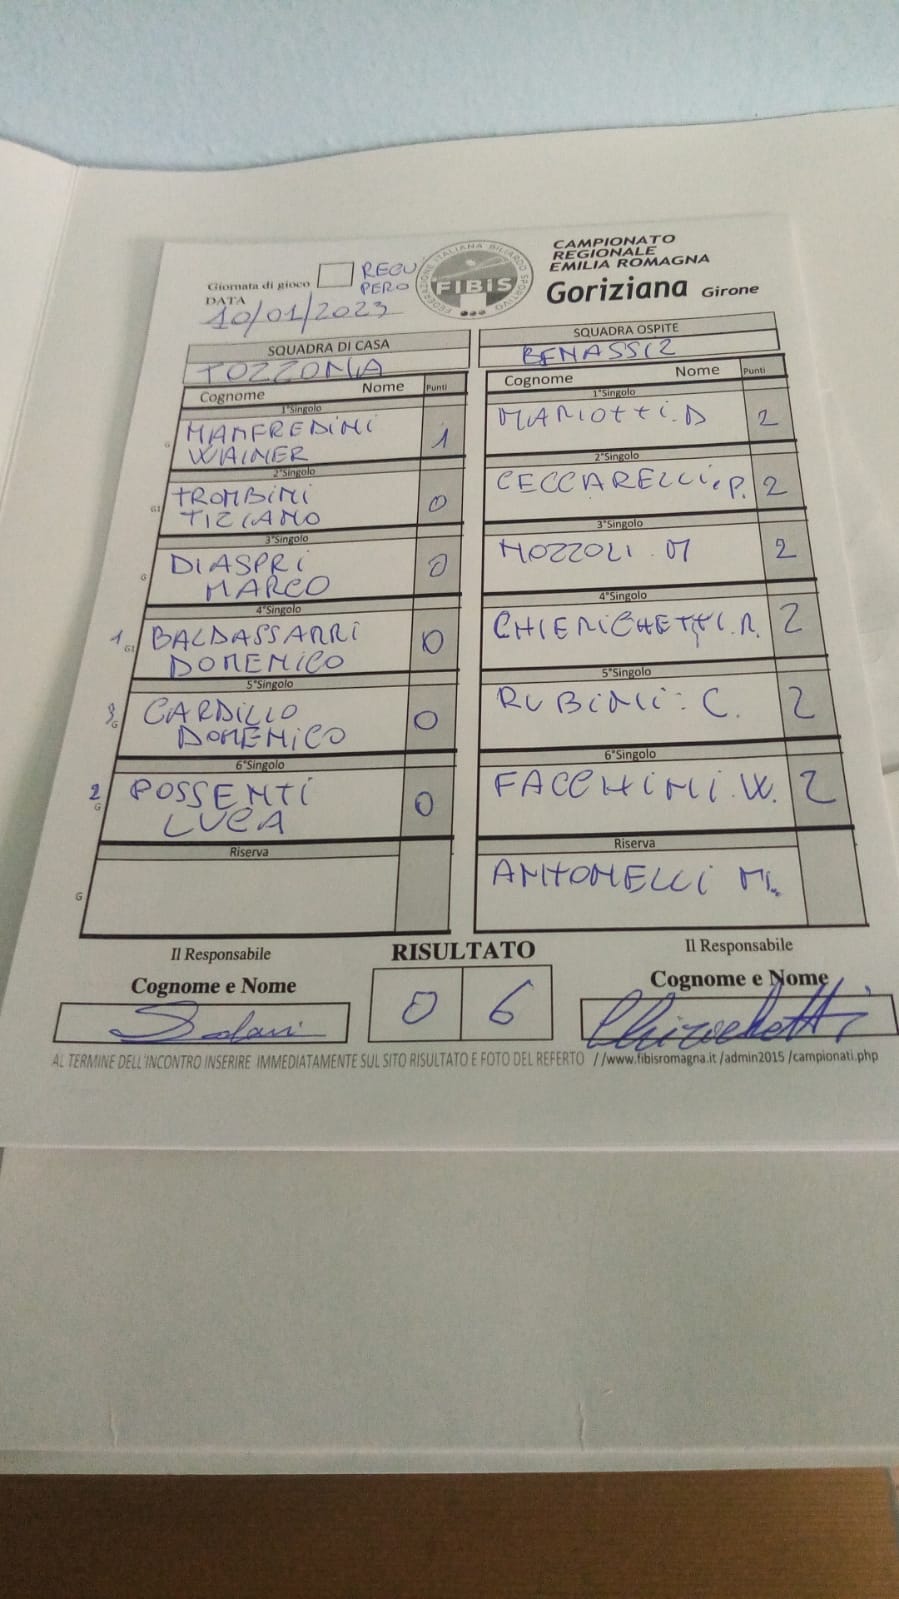 Giornata di gioco
RECU
PERO
DATA
10/01/2023
FEDERAZIONE ITALIANA BILIARDO SPORTIVO
FIBIS
CAMPIONATO
REGIONALE
EMILIA ROMAGNA
Goriziana Girone
SQUADRA DI CASA
TOZZONA
Cognome Nome Punti
1°Singolo
G MANFREDINI
WAINER 1
2°Singolo
G1 TROMBINI
TIZIANO 0
3°Singolo
G DIASPRI
MARCO 0
4°Singolo
1 G1 BALDASSARRI
DOMENICO 0
5°Singolo
3 G CARDILLO
DOMENICO 0
6°Singolo
2 G POSSENTI
LUCA 0
Riserva
G
SQUADRA OSPITE
BENASSI2
Cognome Nome Punti
1°Singolo
MARIOTTI.D 2
2°Singolo
CECCARELLI.P. 2
3°Singolo
MOZZOLI.M 2
4°Singolo
CHIERICHETTI.R. 2
5°Singolo
RUBINI:C. 2
6°Singolo
FACCHINI.W. 2
Riserva
ANTONELLI M.
Il Responsabile
Cognome e Nome
RISULTATO
0 6
Il Responsabile
Cognome e Nome
Chierichetti
AL TERMINE DELL'INCONTRO INSERIRE IMMEDIATAMENTE SUL SITO RISULTATO E FOTO DEL REFERTO //www.fibisromagna.it /admin2015 /campionati.php